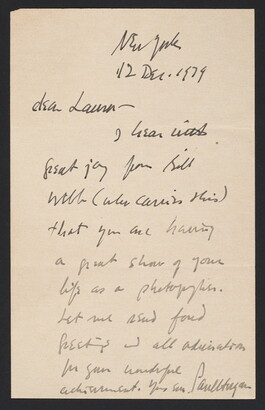 New York
12 Dec. 1979
dear Laura—
I hear with
great joy from Bill
Webb (who carries this)
that you are having
a great show of your
life as a photographer.
Let me send fond
greeting and all admiration
for your wonderful
achievement. Yours ever